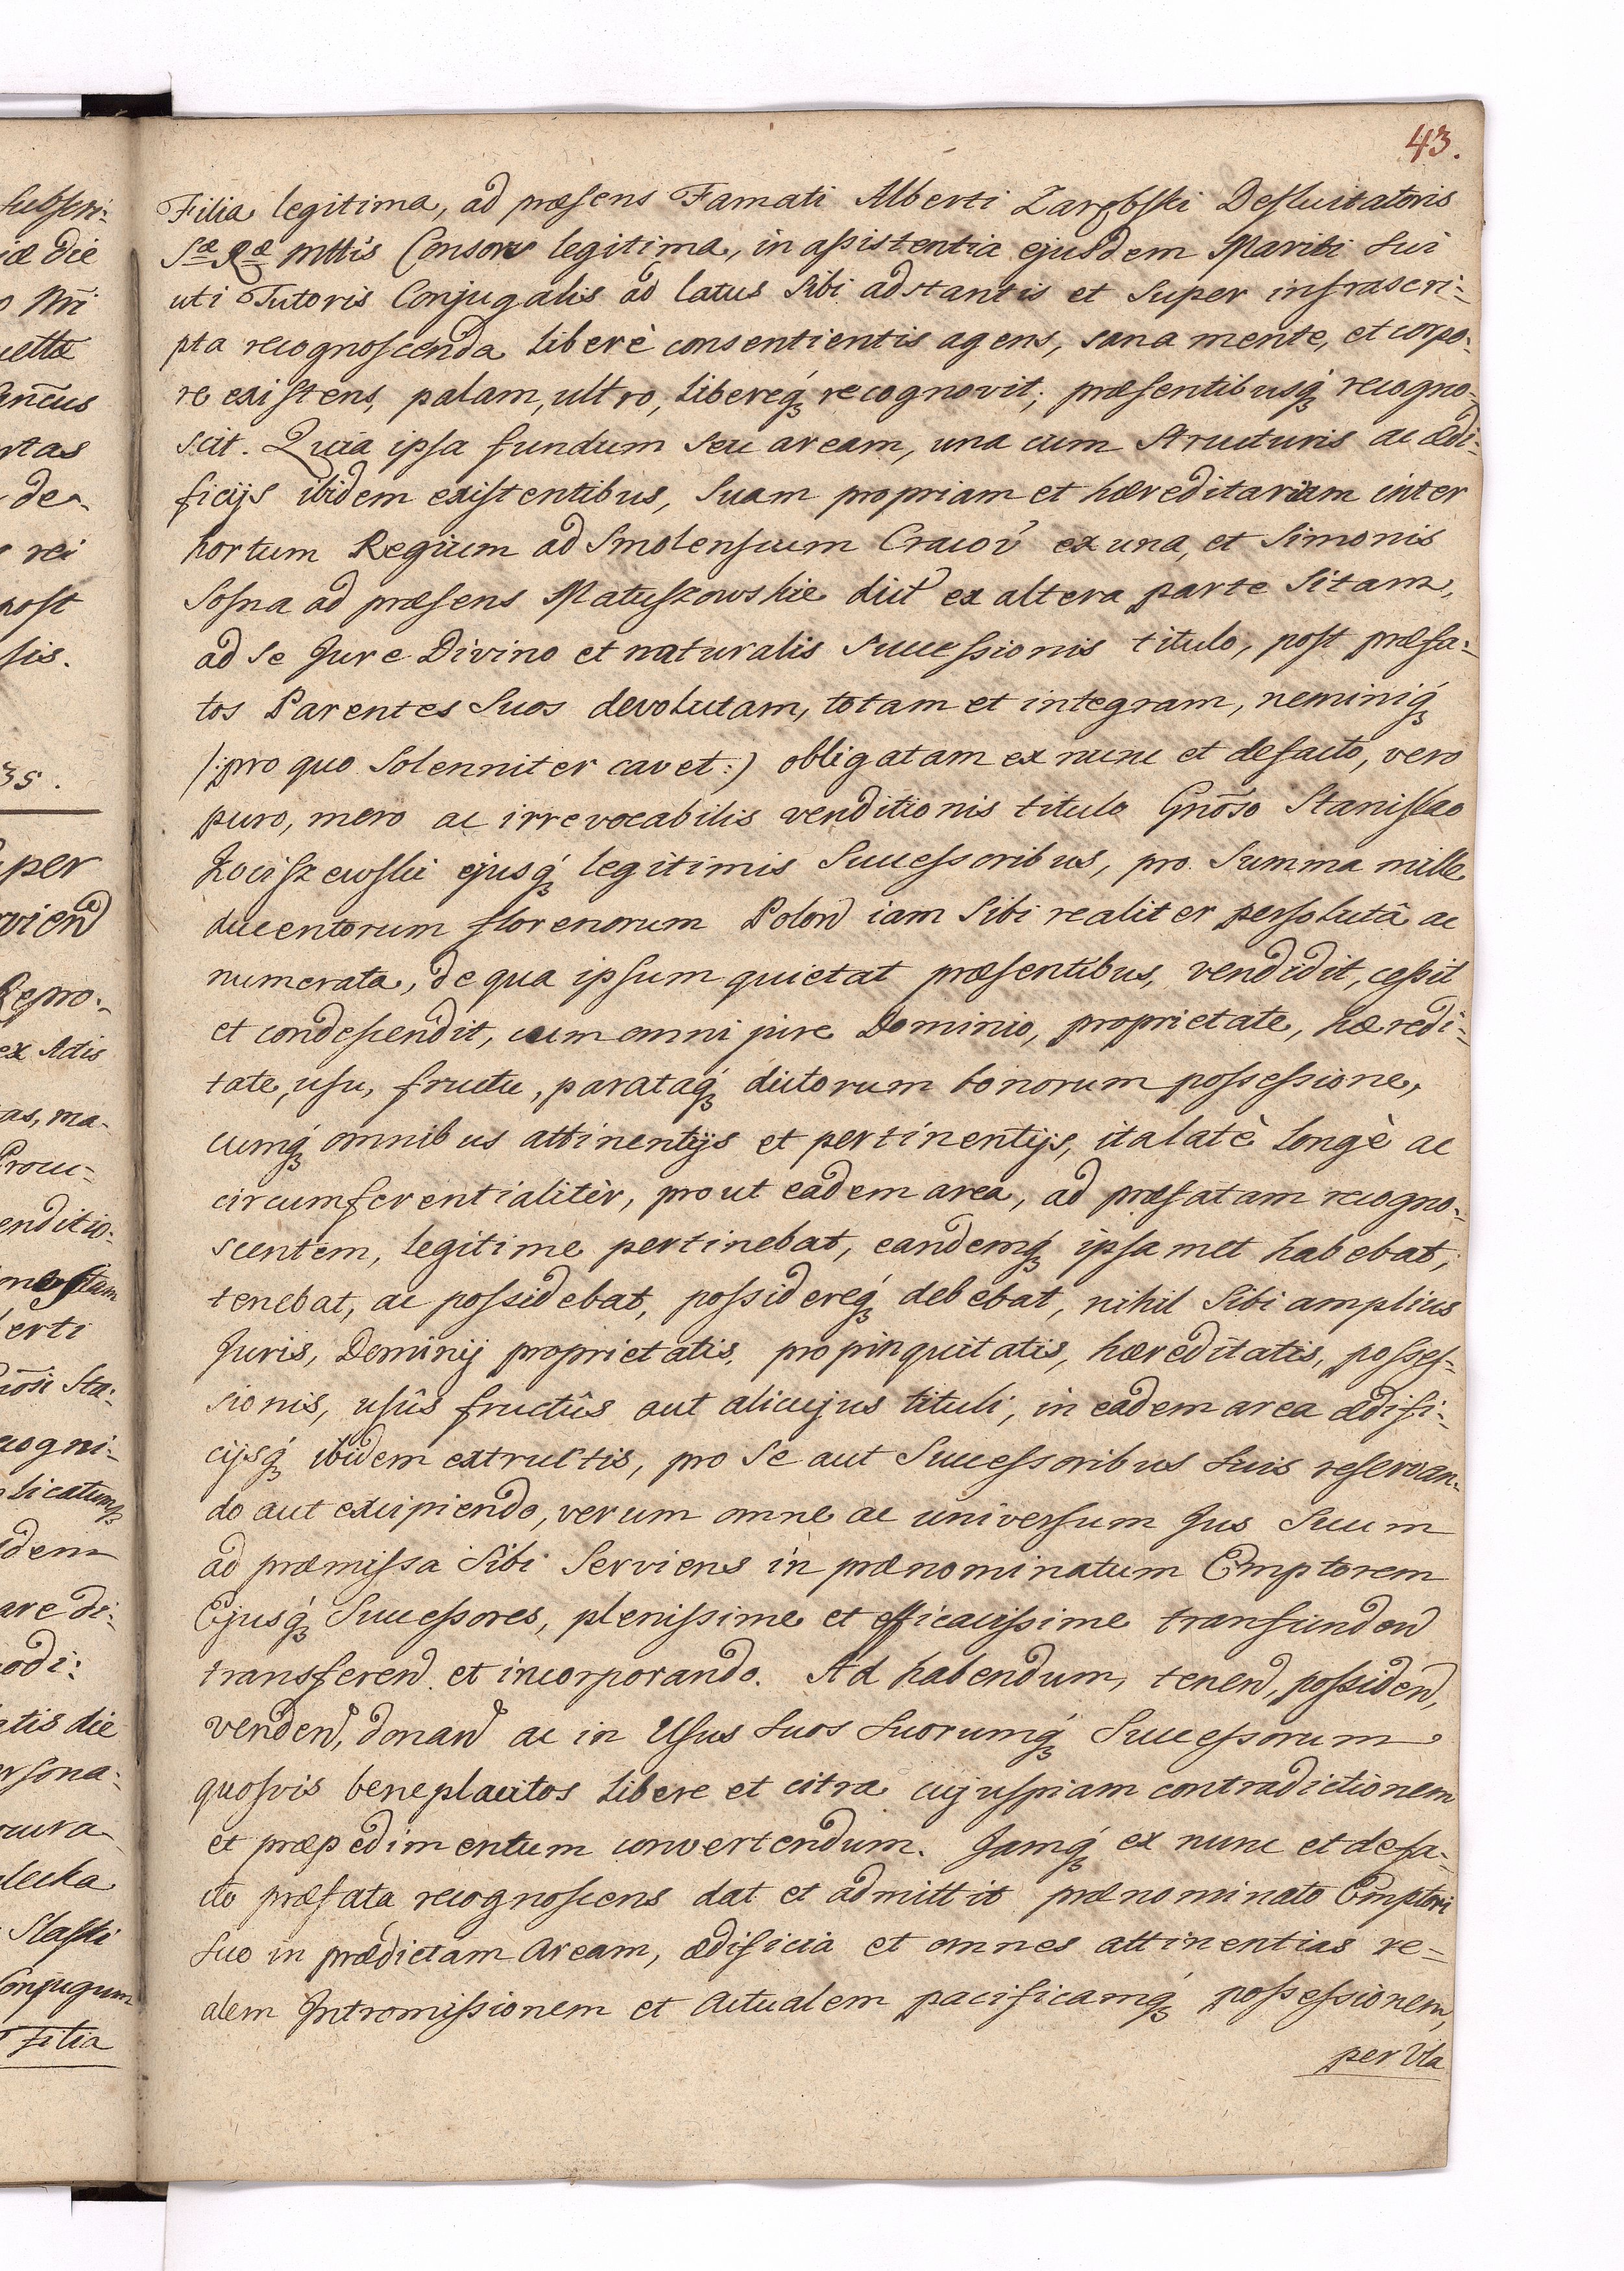 43.
Filia legitima, ad præsens Famati Alberti Zarębski Desluitatoris
Sæ Ræ Mttis Consors legitima, in assistentia ejusdem Mariti Sui
uti Tutoris Conjugalis ad latus Sibi adstantis et Super infrascri:
pta recognoscenda liberè consentientis agens, sana mente, et corpo:
re existens, palam, ultro, libereq́ꝫ recognovit, præsentibusq́ꝫ recogno:
scit. Quia ipsa fundum seu aream, una cum Structuris ac ædi:
ficijs ibidem existentibus, Suam propriam et hæreditariam inter
hortum Regium ad Smolenscum Cracov̄ ex una, et Simonis
Sosna ad præsens Matuszowskie dict̄ ex altera parte Sitam,
ad se Jure Divino et naturalis Successionis titulo, post præfa:
tos Parentes Suos devolutam, totam et integram, neminiq́ꝫ
/:pro quo Solenniter cavet:) obligatam ex nunc et defacto, vero
puro, mero ac irrevocabilis venditionis titulo Gnōso Stanislao
Kociszewski ejusq́ꝫ legitimis Successoribus, pro Summa mille
ducentorum florenorum Polon̄ iam Sibi realiter persolutâ ac
numerata, de qua ipsum quietat præsentibus, vendidit, cessit
et condescendit, cum omni jure Dominio, proprietate, hæredi:
tate, usu, fructu, parataq́ꝫ dictorum bonorum possessione,
cumq́ꝫ omnibus attinentijs et pertinentijs, ita latè longè ac
circumferentialitèr, prout eadem area, ad præfatam recogno:
scentem, legitime pertinebat, eandemq́ꝫ ipsamet habebat,
tenebat, ac possidebat, possidereq́ꝫ debebat, nihil Sibi amplius
Juris, Dominij proprietatis, propinquitatis, hæreditatis, posses:
sionis, usûs fructûs aut alicujus tituli, in eadem area ædifi:
cijsq́ꝫ ibidem extructis, pro Se aut Successoribus Suis reservan:
do aut excipiendo, verum omne ac universum Jus Suum
ad præmissa Sibi Serviens in prænominatum Emptorem
Ejusq́ꝫ Successores, plenissime et efficacissime transfunden̄
transferen̄ et incorporando. Ad habendum, tenen̄, possiden̄,
venden̄, donan̄ ac in Usus Suos Suorumq́ꝫ Successorum
quosvis beneplacitos libere et citra cujuspiam contradictionem
et præpedimentum convertendum. Jamq́ꝫ ex nunc et defa:
cto præfata recognoscens dat et admittit prænominato Emptori
Suo in prædictam Aream, ædificia et omnes attinentias re=
alem Intromissionem et Actualem pacificamq́ꝫ possessionem,
per Vla